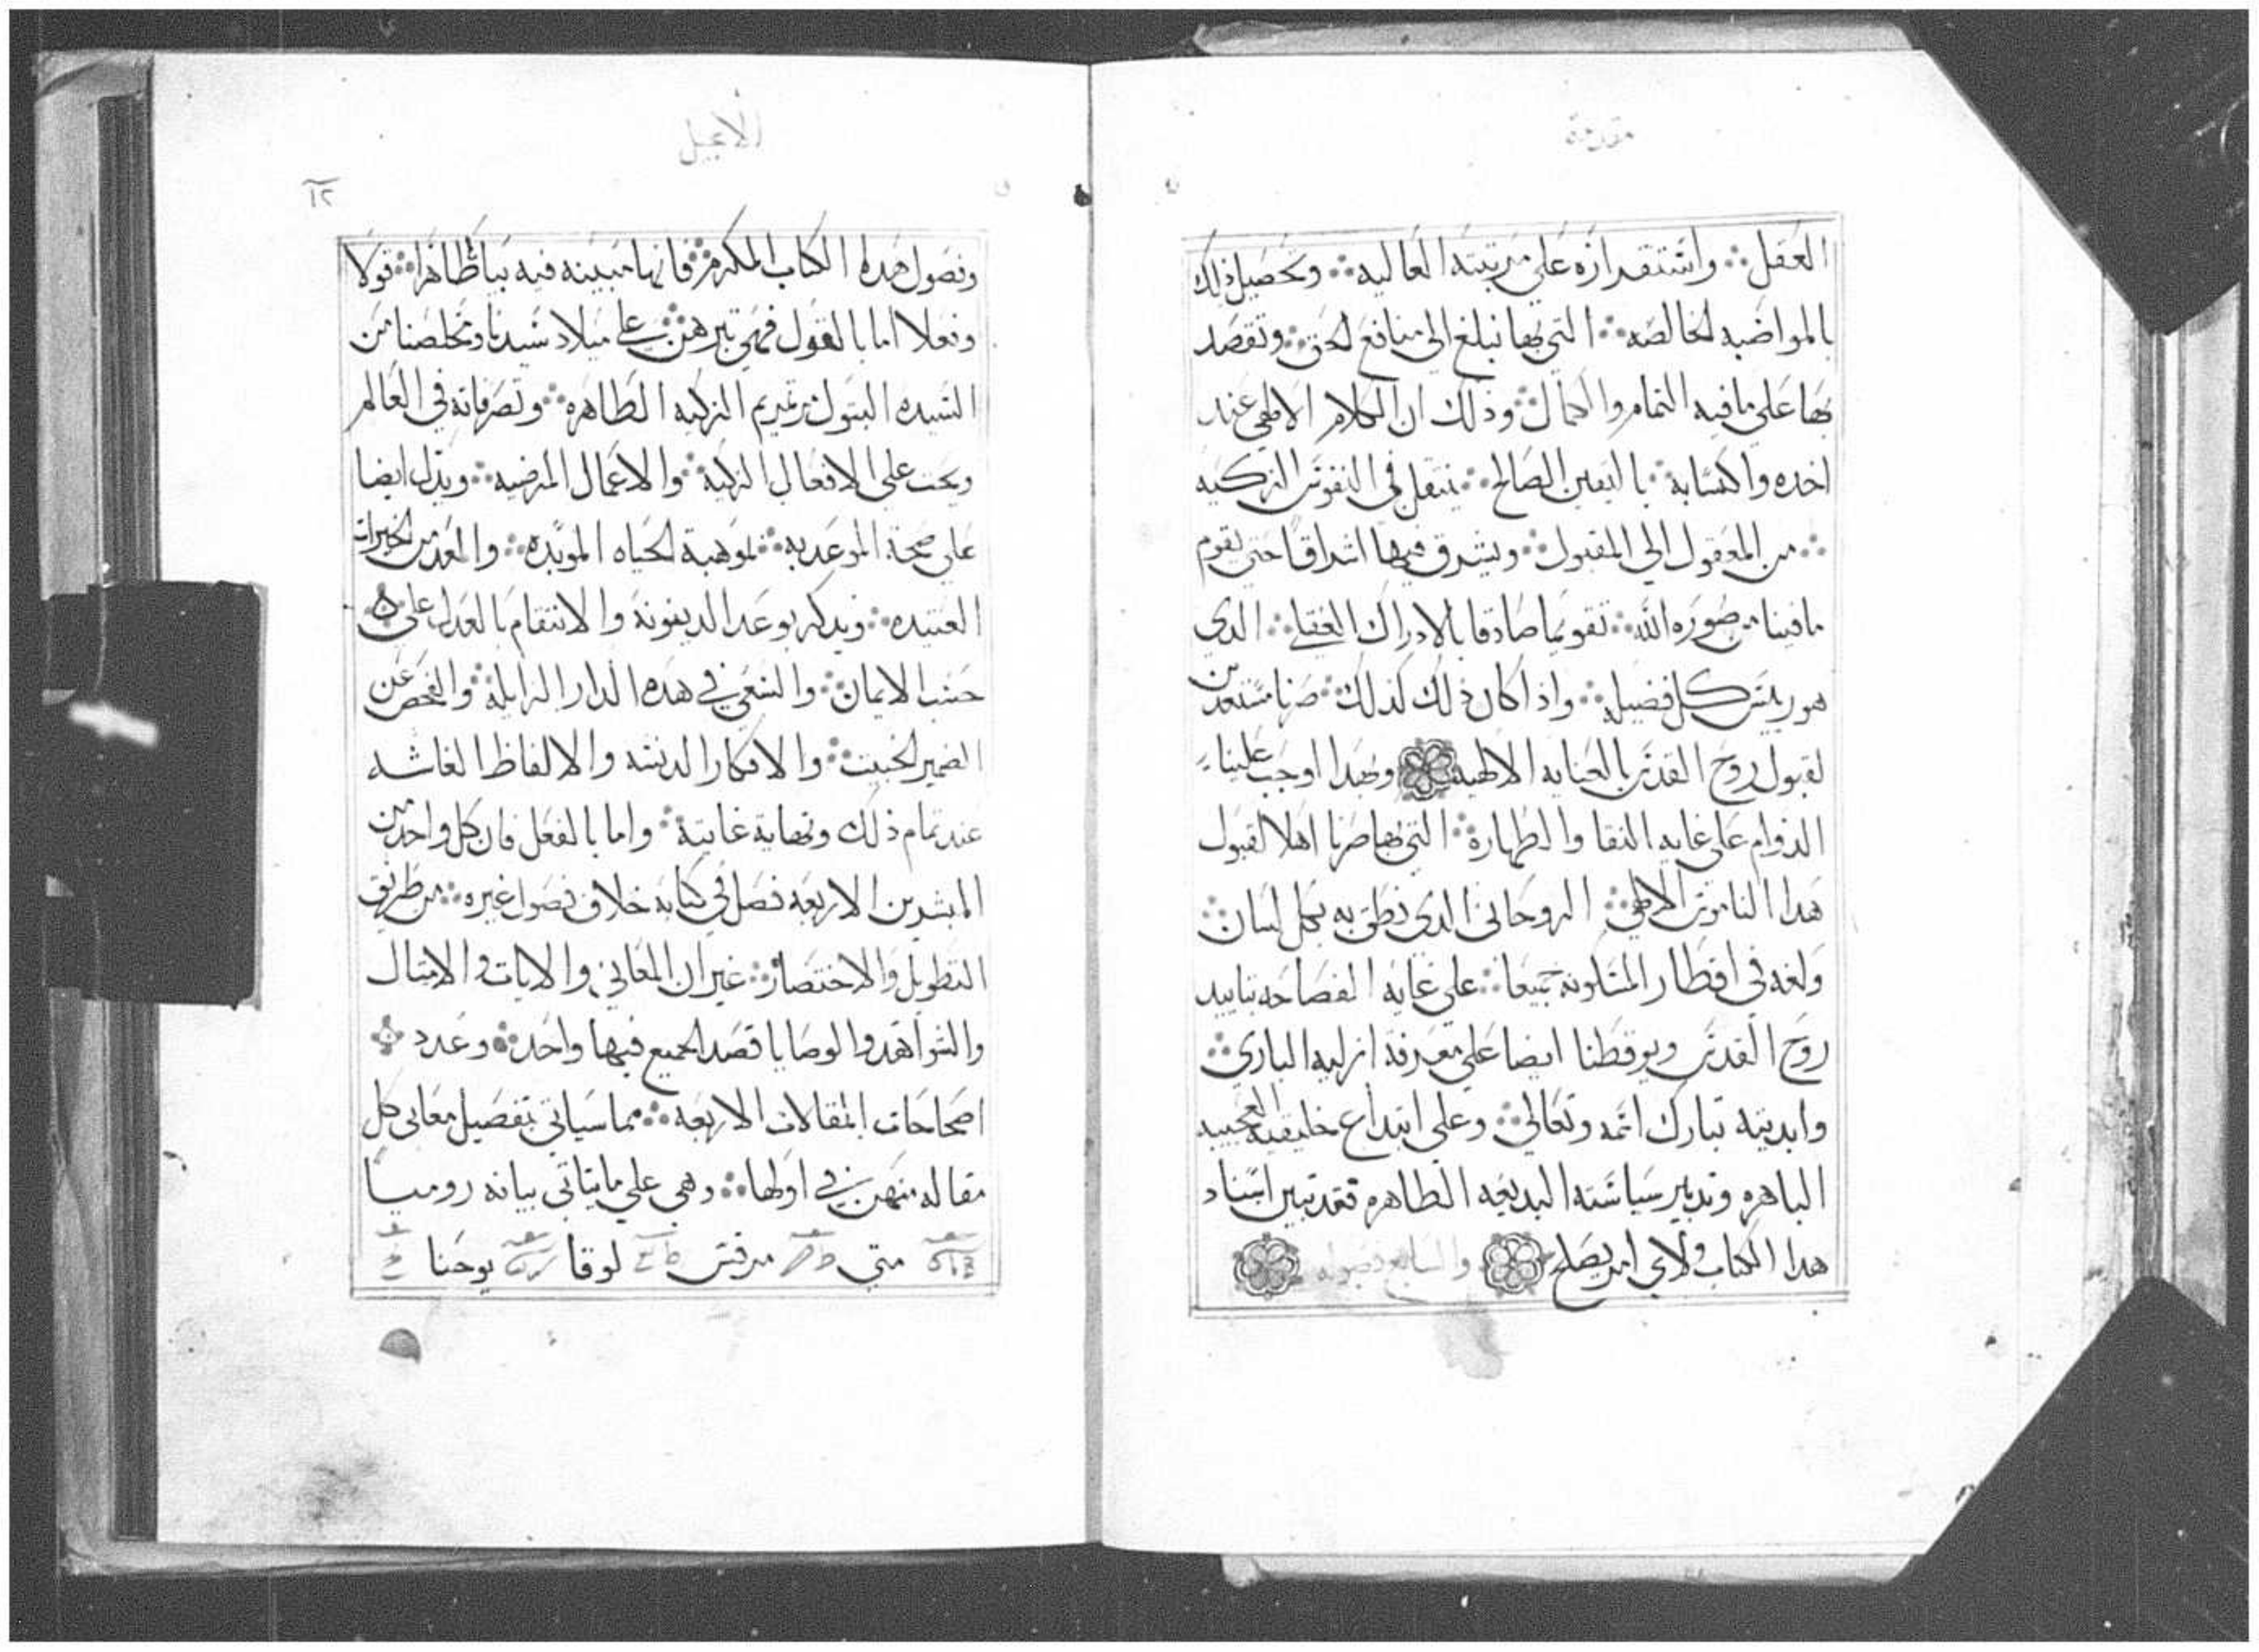 مقدمة
العقل ؞ واستقراره على مرتبته العاليه ؞ وتحصيل ذلك
بالمواضبه الخالصه ؞ التي بها نبلغ الي منافع الحق ؞ ونقصد
بها على ما فيه التمام والكمال ؞ وذلك ان الكلام الالاهي عند
اخده واكتسابه ؞ باليقين الصالح ؞ ينتقل في النفوس الزكيه
؞ من المعقول الي المقبول ؞ ويشرق فيها اشراقا حتي يقوم
ما فينا من صورة الله ؞ تقويما صادقا بالادراك العقلي ؞ الدي
هو ريس كل فضيله ؞ واذا كان ذلك كدلك ؞ صرنا مستعدين
لقبول روح القدس بالعنايه الالهيه وبهدا اوجب علينا
الدوام على غايه النقا والطهارة ؞ التي بها صرنا اهلا لقبول
هدا الناموس الالاهي ؞ الروحاني الدي نطق به بكل لسان ؞
ولغه في اقطار المسكونه جميعا ؞ علي غايه الفصاحه بتاييد
روح القدس ويوقظنا ايضا على معرفة ازليه الباري ؞
وابديته تبارك اسمه وتعالي ؞ وعلي ابتداع خليقته العجيبه
الباهره وتدبير سياسته البديعه الطاهره فقد تبين اسناد
هدا الكتاب ولاي امر يصلح والسابع فصوله
الانجيل
١٢
وفصول هدا الكتاب المكرم ؞ فانها مبينه فيه بيانا ظاهرا ؞ قولا
وفعلا اما بالقول فهي تبرهن ؞ علي ميلاد سيدنا ومخلصنا من
السيده البتول مرتمريم الزكيه الطاهره ؞ وتصرفاته في العالم
ويحث علي الافعال الزكية ؞ والاعمال المرضيه ؞ ويدل ايضا
علي صحة الموعد به ؞ بموهبة الحياه الموبده ؞ والعد من الخيرات
العتيده ؞ ويدكر بوعد الدينونة والانتقام بالعدل علي
حسب الايمان ؞ والسعي في هده الدار الزايله ؞ والفحص عن
الضمير الخبيث ؞ والافكار الدنسه والالفاظ الغاشه
عند تمام ذلك ونهاية غايتة ؞ واما بالفعل فان كل واحد من
المبشرين الاربعه فصل في كتابه خلاف فصول غيره ؞ من طريق
التطويل والاختصار ؞ غير ان المعاني والايات والامثال
والشواهد والوصايا قصد الجميع فيها واحد ؞ وعدد
اصحاحات المقالات الاربعه ؞ مما سياتي تفصيل معاني كل
مقاله منهن في اولها ؞ وهي علي ما يتاتي بيانه روميا
متي مرقس لوقا يوحنا